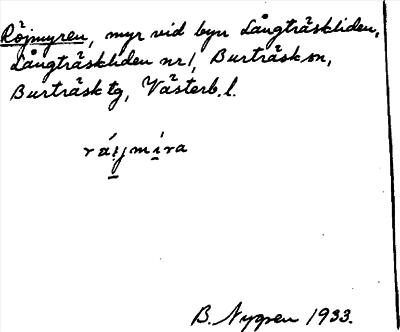 Röjmyren, myr vid byn Långträskliden,
Långträskliden nr 1, Burträsk sn,
Burträsk tg, Västerb. l.
ráijmíra
B. Nygren 1933.